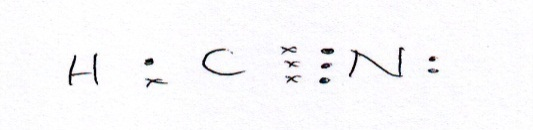 H C N